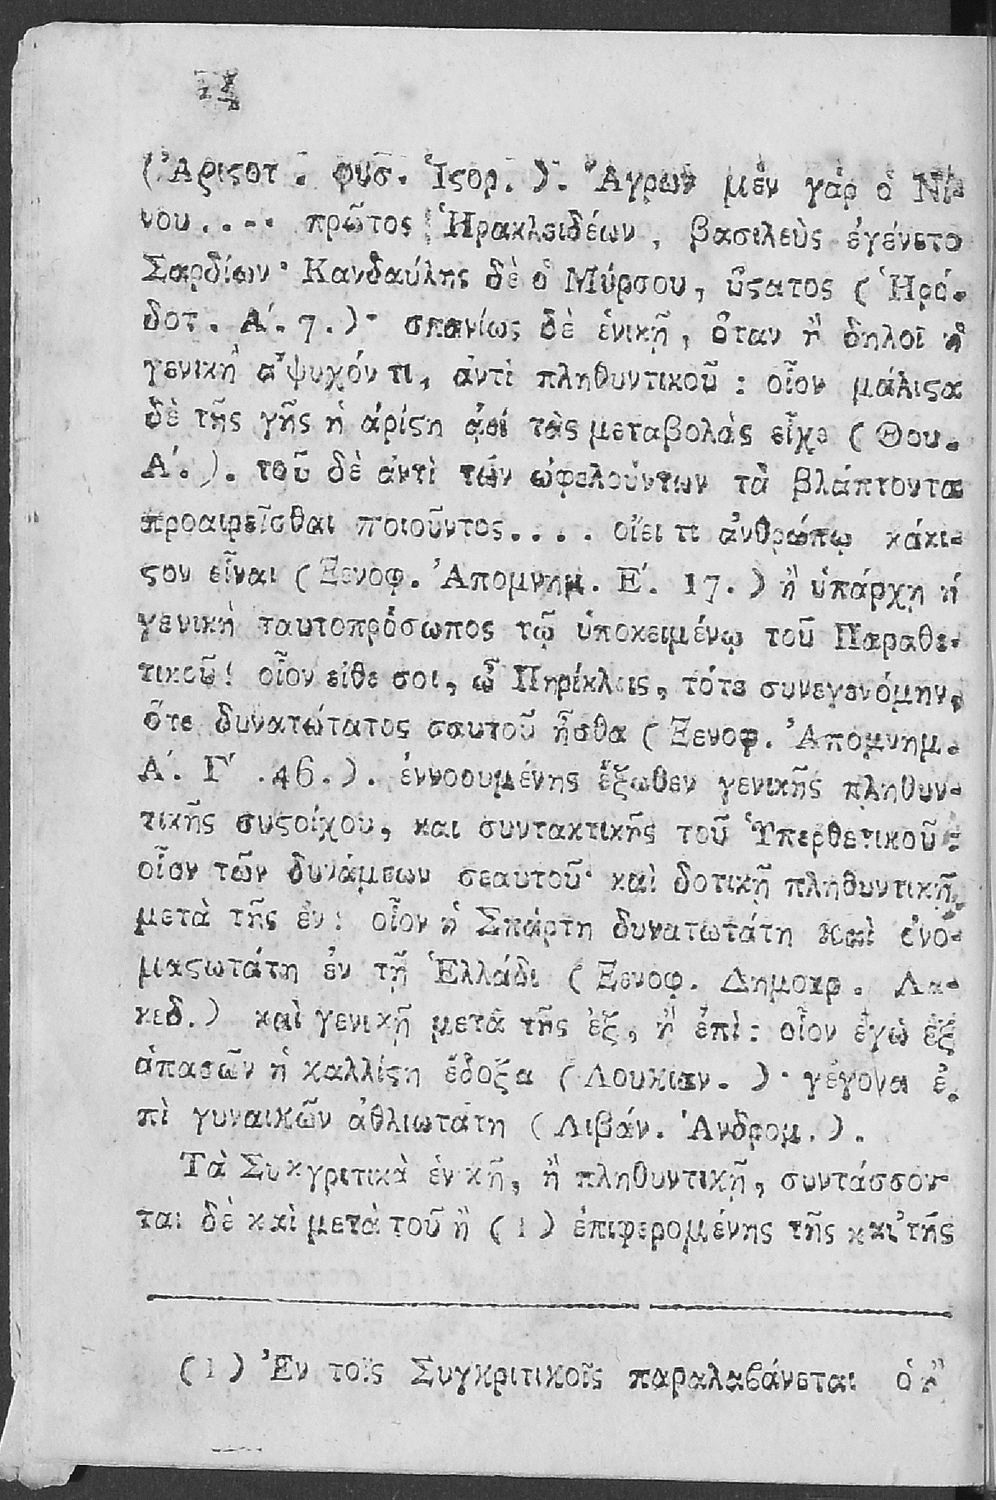 (Ἀριϛοτ. φυσ. Ἱϛορ.). Ἄγρων μὲν γὰρ ὁ Νί-
νου.... πρῶτος Ἡρακλειδέων, βασιλεὺς ἐγένετο
Σαρδίων· Κανδαύλης δὲ ὁ Μύρσου, ὕϛατος (Ἡρό-
δοτ. Α΄. 7.)· σπανίως δὲ ἑνικῇ, ὅταν ἢ δηλοῖ ἡ
γενικὴ ἄψυχόν τι, ἀντὶ πληθυντικοῦ: οἷον μάλιϛα
δὲ τῆς γῆς ἡ ἀρίϛη ἀεί τὰς μεταβολὰς εἶχε (Θου.
Α΄.). τοῦ δὲ ἀντὶ τῶν ὠφελούντων τὰ βλάπτοντα
προαιρεῖσθαι ποιοῦντος.... οἴει τι ἀνθρώπῳ κάκι-
ϛον εἶναι (Ξενοφ. Ἀπομνημ. Ε΄. 17.) ἢ ὑπάρχῃ ἡ
γενικὴ ταυτοπρόσωπος τῷ ὑποκειμένῳ τοῦ Παραθε-
τικοῦ! οἷον είθε σοι, ὦ Περίκλεις, τότε συνεγενόμην,
ὅτε δυνατώτατος σαυτοῦ ἦσθα (Ξενοφ. Ἀπομνημ.
Α΄. Γ΄ .46.). ἐννοουμένης ἔξωθεν γενικῆς πληθυν-
τικῆς συϛοίχου, και συντακτικῆς τοῦ Ὑπερθετικοῦ:
οἷον τῶν δυνάμεων σεαυτοῦ· καὶ δοτικῇ πληθυντικῇ
μετὰ τῆς ἐν: οἷον ἡ Σπάρτη δυνατωτάτη καὶ ὀνο-
μαϛωτάτη ἐν τῇ Ἑλλάδι (Ξενοφ. Δημοκρ. Λα-
κεδ.) καὶ γενικῇ μετὰ τῆς ἐξ, ἢ ἐπὶ: οἷον ἐγὼ ἐξ
ἁπασῶν ἡ καλλίϛη ἔδοξα (Λουκιαν.)· γέγονα ἐ-
πὶ γυναικῶν ἀθλιωτάτη (Λιβάν. Ἀνδρομ.).
Τὰ Συγκριτικὰ ἑνικῇ, ἢ πληθυντικῇ, συντάσσον-
ται δὲ καὶ μετὰ τοῦ ἢ (1) ἐπιφερομένης τῆς κατ' τῆς
(1) Ἐν τοῖς Συγκριτικοῖς παραλαϐάνεται ὁ ἢ